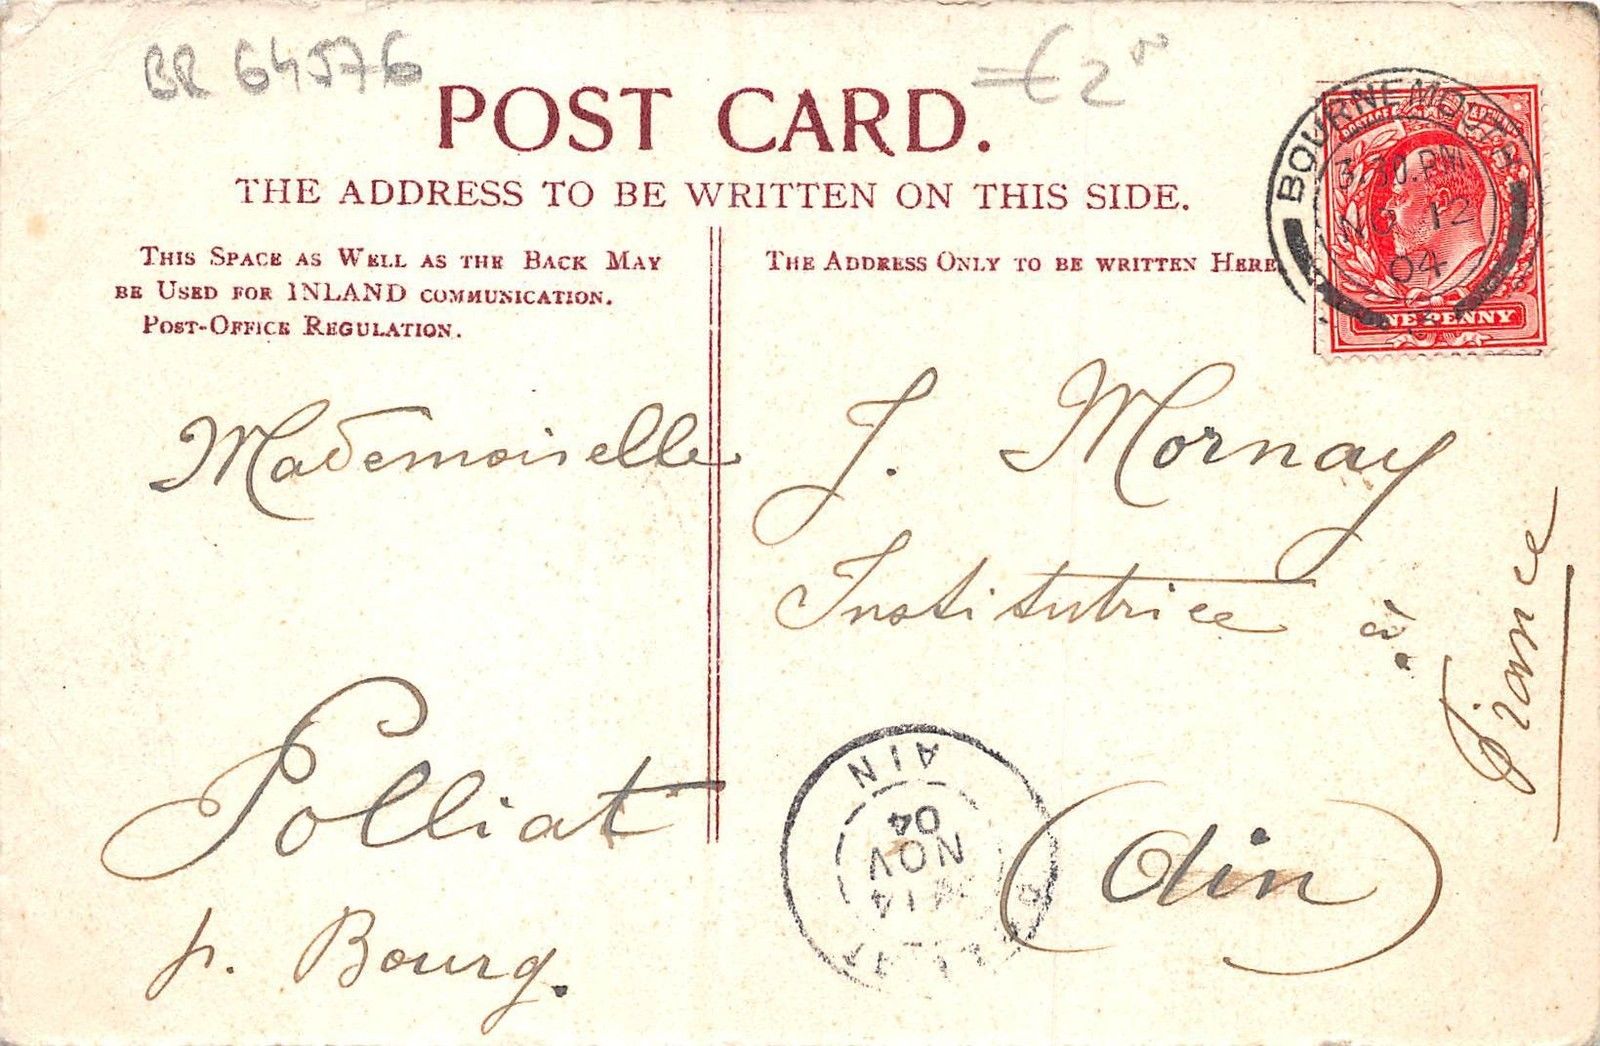 BR 64576
€ 2
POST CARD.
THE ADDRESS TO BE WRITTEN ON THIS SIDE.
THIS SPACE AS WELL AS THE BACK MAY
BE USED FOR INLAND COMMUNICATION.
POST-OFFICE REGULATION.
THE ADDRESS ONLY TO BE WRITTEN HERE
BOURNEMOUTH
3.30.PM
NO 12
04
ONE PENNY
Mademoiselle J. Mornay
Institutrice à
Polliat (Ain)
p. Bourg.
France
AIN
14
NOV
04